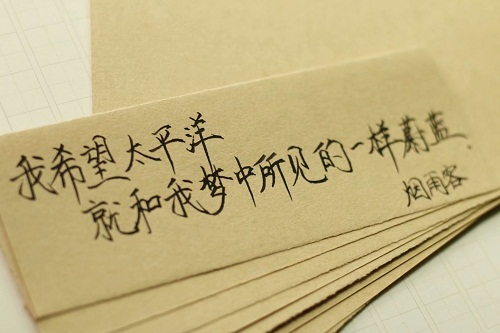 我希望太平洋
就和我梦中所见的一样蔚蓝.
烟雨客